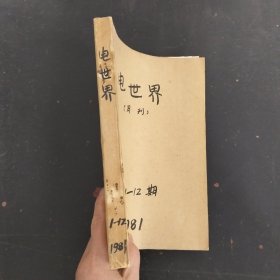 电世界
电世界
(月刊)
1-12期
1-12
1981
198